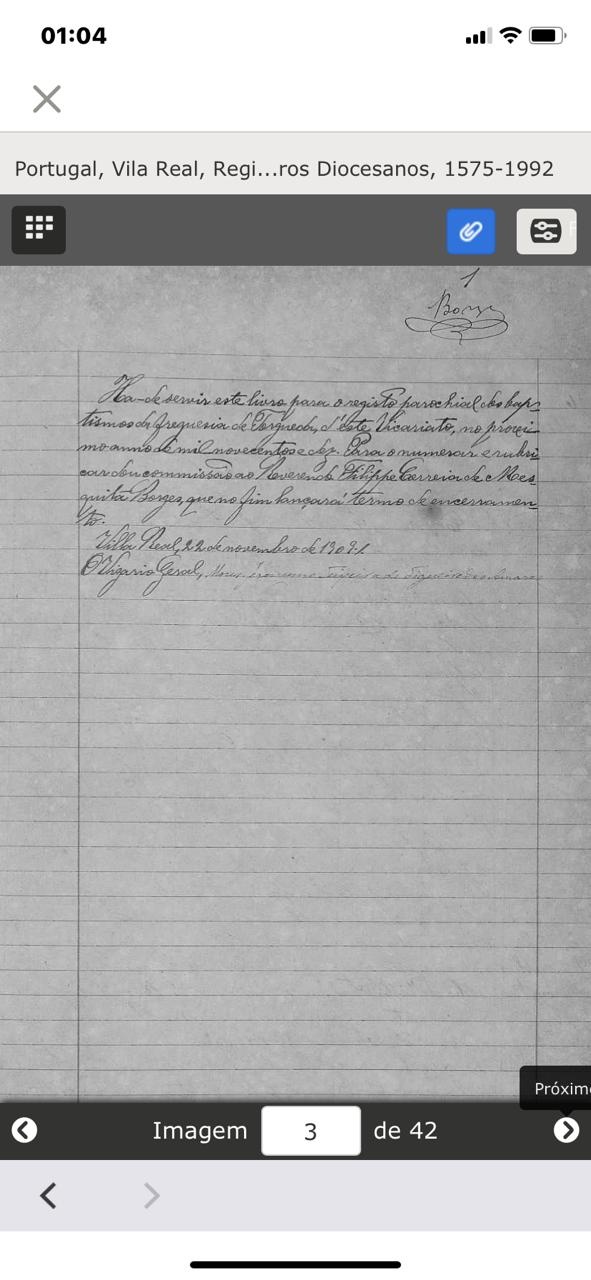 01:04
Portugal, Vila Real, Regi...ros Diocesanos, 1575-1992
1
Borges
Ha-de servir este livro para o registo parochial dos bap-
tismos da freguesia de Torgueda, d'este Vicariato, no proxi-
mo anno de mil novecentos e dez. Para o numerar e rubri-
car dou commissão ao Reverendo Philippe Correia de Mes-
quita Borges, que no fim lançará termo de encerramen-
to.
Villa Real, 22 de novembro de 1909.
O Vigario Geral,
Próxim
Imagem 3 de 42